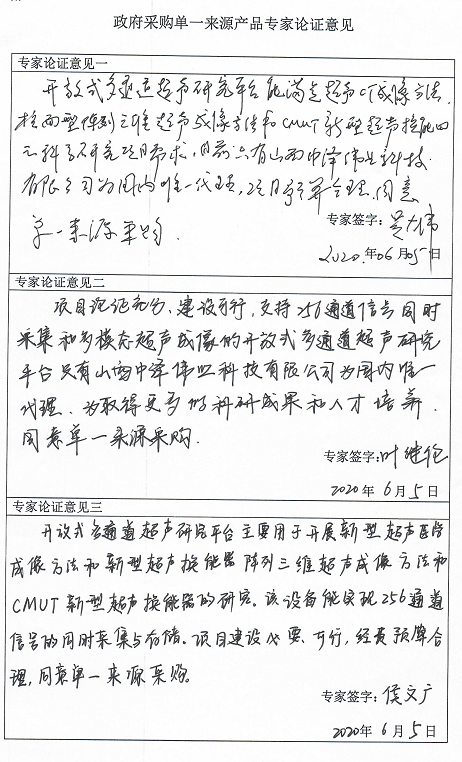 政府采购单一来源产品专家论证意见
专家论证意见一
开放式多通道超声研究平台能满足超声CT成像方法、
阵列三维超声成像方法和CMUT新型超声换能
科学研究项目需求,目前只有山西中泽伟业科技
有限公司为国内唯一代理,项目预算合理,同意
单一来源采购.
专家签字:
2020.年06月05日
专家论证意见二
项目论证充分、建设可行,支持256通道信号同时
采集和多模态超声成像的开放式多通道超声研究
平台只有山西中泽伟业科技有限公司为国内唯一
代理.为取得更多的科研成果和人才培养.
同意单一来源采购.
专家签字:叶继伦
2020年6月5日
专家论证意见三
开放式多通道超声研究平台主要用于开展新型超声医学
成像方法和新型超声换能器阵列三维超声成像方法和
CMUT新型超声换能器的研究.该设备能实现256通道
信号的同时采集与存储.项目建设必要、可行,经费预算合
理,同意单一来源采购.
专家签字:侯文广
2020年6月5日